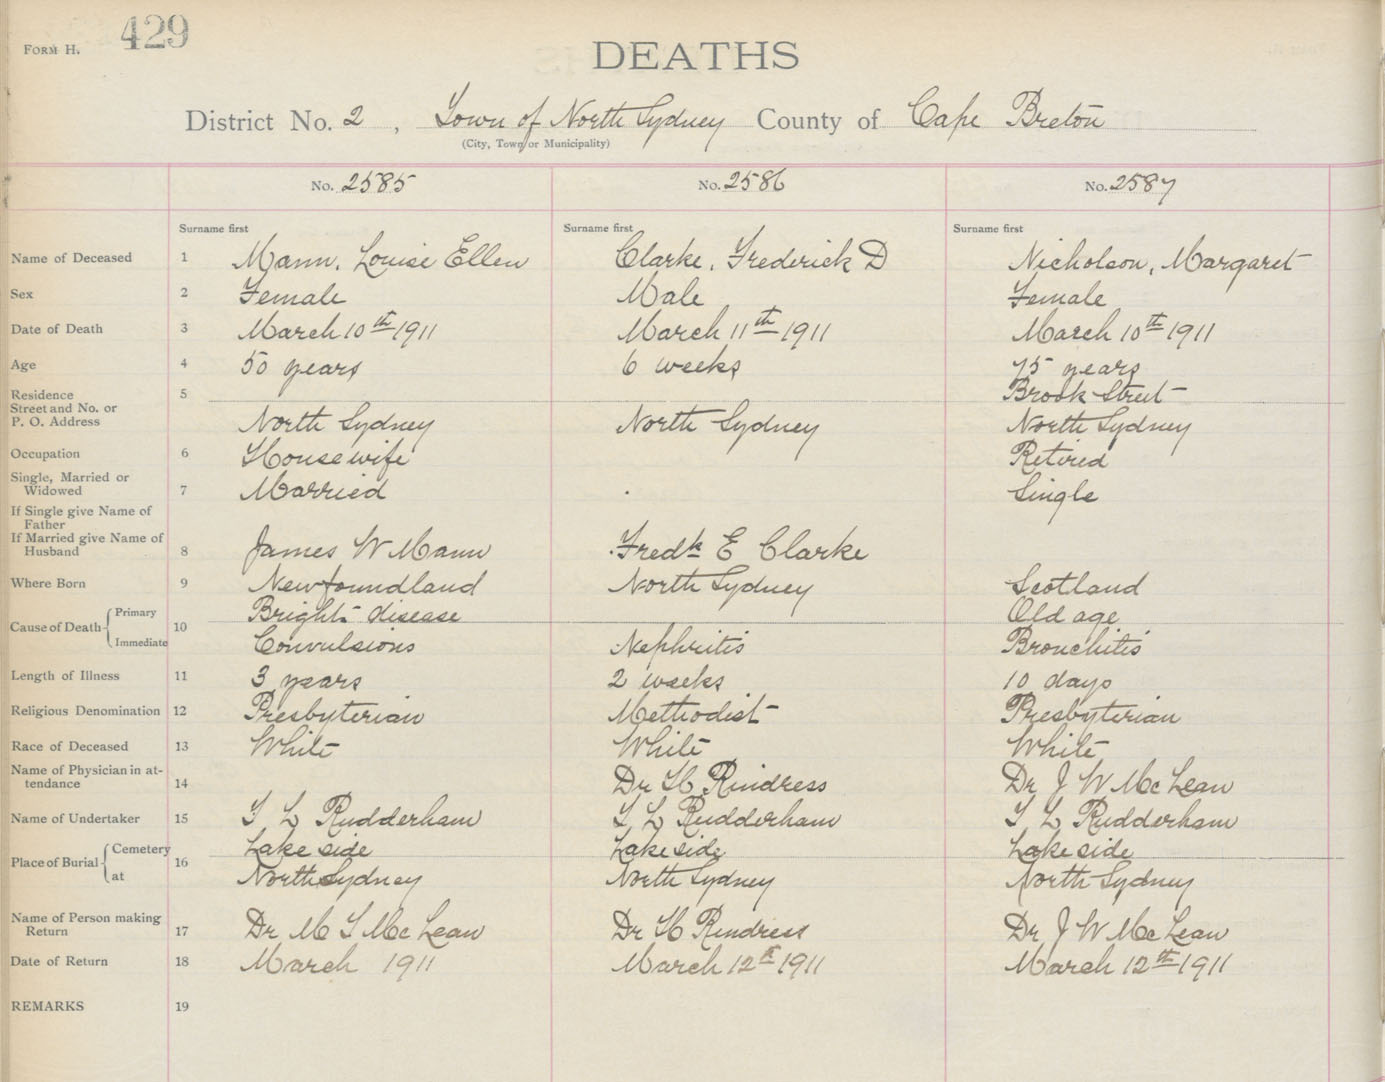 FORM H.
429
DEATHS
District No. 2, Town of North Sydney County of Cape Breton
(City, Town or Municipality)
No. 2585 No. 2586 No. 2587
Surname first Surname first Surname first
Name of Deceased 1 Mann, Louise Ellen Clarke, Frederick D Nicholson, Margaret
Sex 2 Female Male Female
Date of Death 3 March 10th 1911 March 11th 1911 March 10th 1911
Age 4 50 years 6 weeks 75 years
Residence 5 Brook Street
Street and No. or
P. O. Address North Sydney North Sydney North Sydney
Occupation 6 Housewife Retired
Single, Married or
Widowed 7 Married Single
If Single give Name of
Father
If Married give Name of
Husband 8 James W Mann Fredk E Clarke
Where Born 9 Newfoundland North Sydney Scotland
Cause of Death 10 Primary Brights disease Old age
Immediate Convulsions Nephritis Bronchitis
Length of Illness 11 3 years 2 weeks 10 days
Religious Denomination 12 Presbyterian Methodist Presbyterian
Race of Deceased 13 White White White
Name of Physician in at-
tendance 14 Dr H Rindress Dr J W McLean
Name of Undertaker 15 T L Rudderham T L Rudderham T L Rudderham
Place of Burial 16 Cemetery Lakeside Lakeside Lakeside
at North Sydney North Sydney North Sydney
Name of Person making
Return 17 Dr M T McLean Dr H Rindress Dr J W McLean
Date of Return 18 March 1911 March 12th 1911 March 12th 1911
REMARKS 19